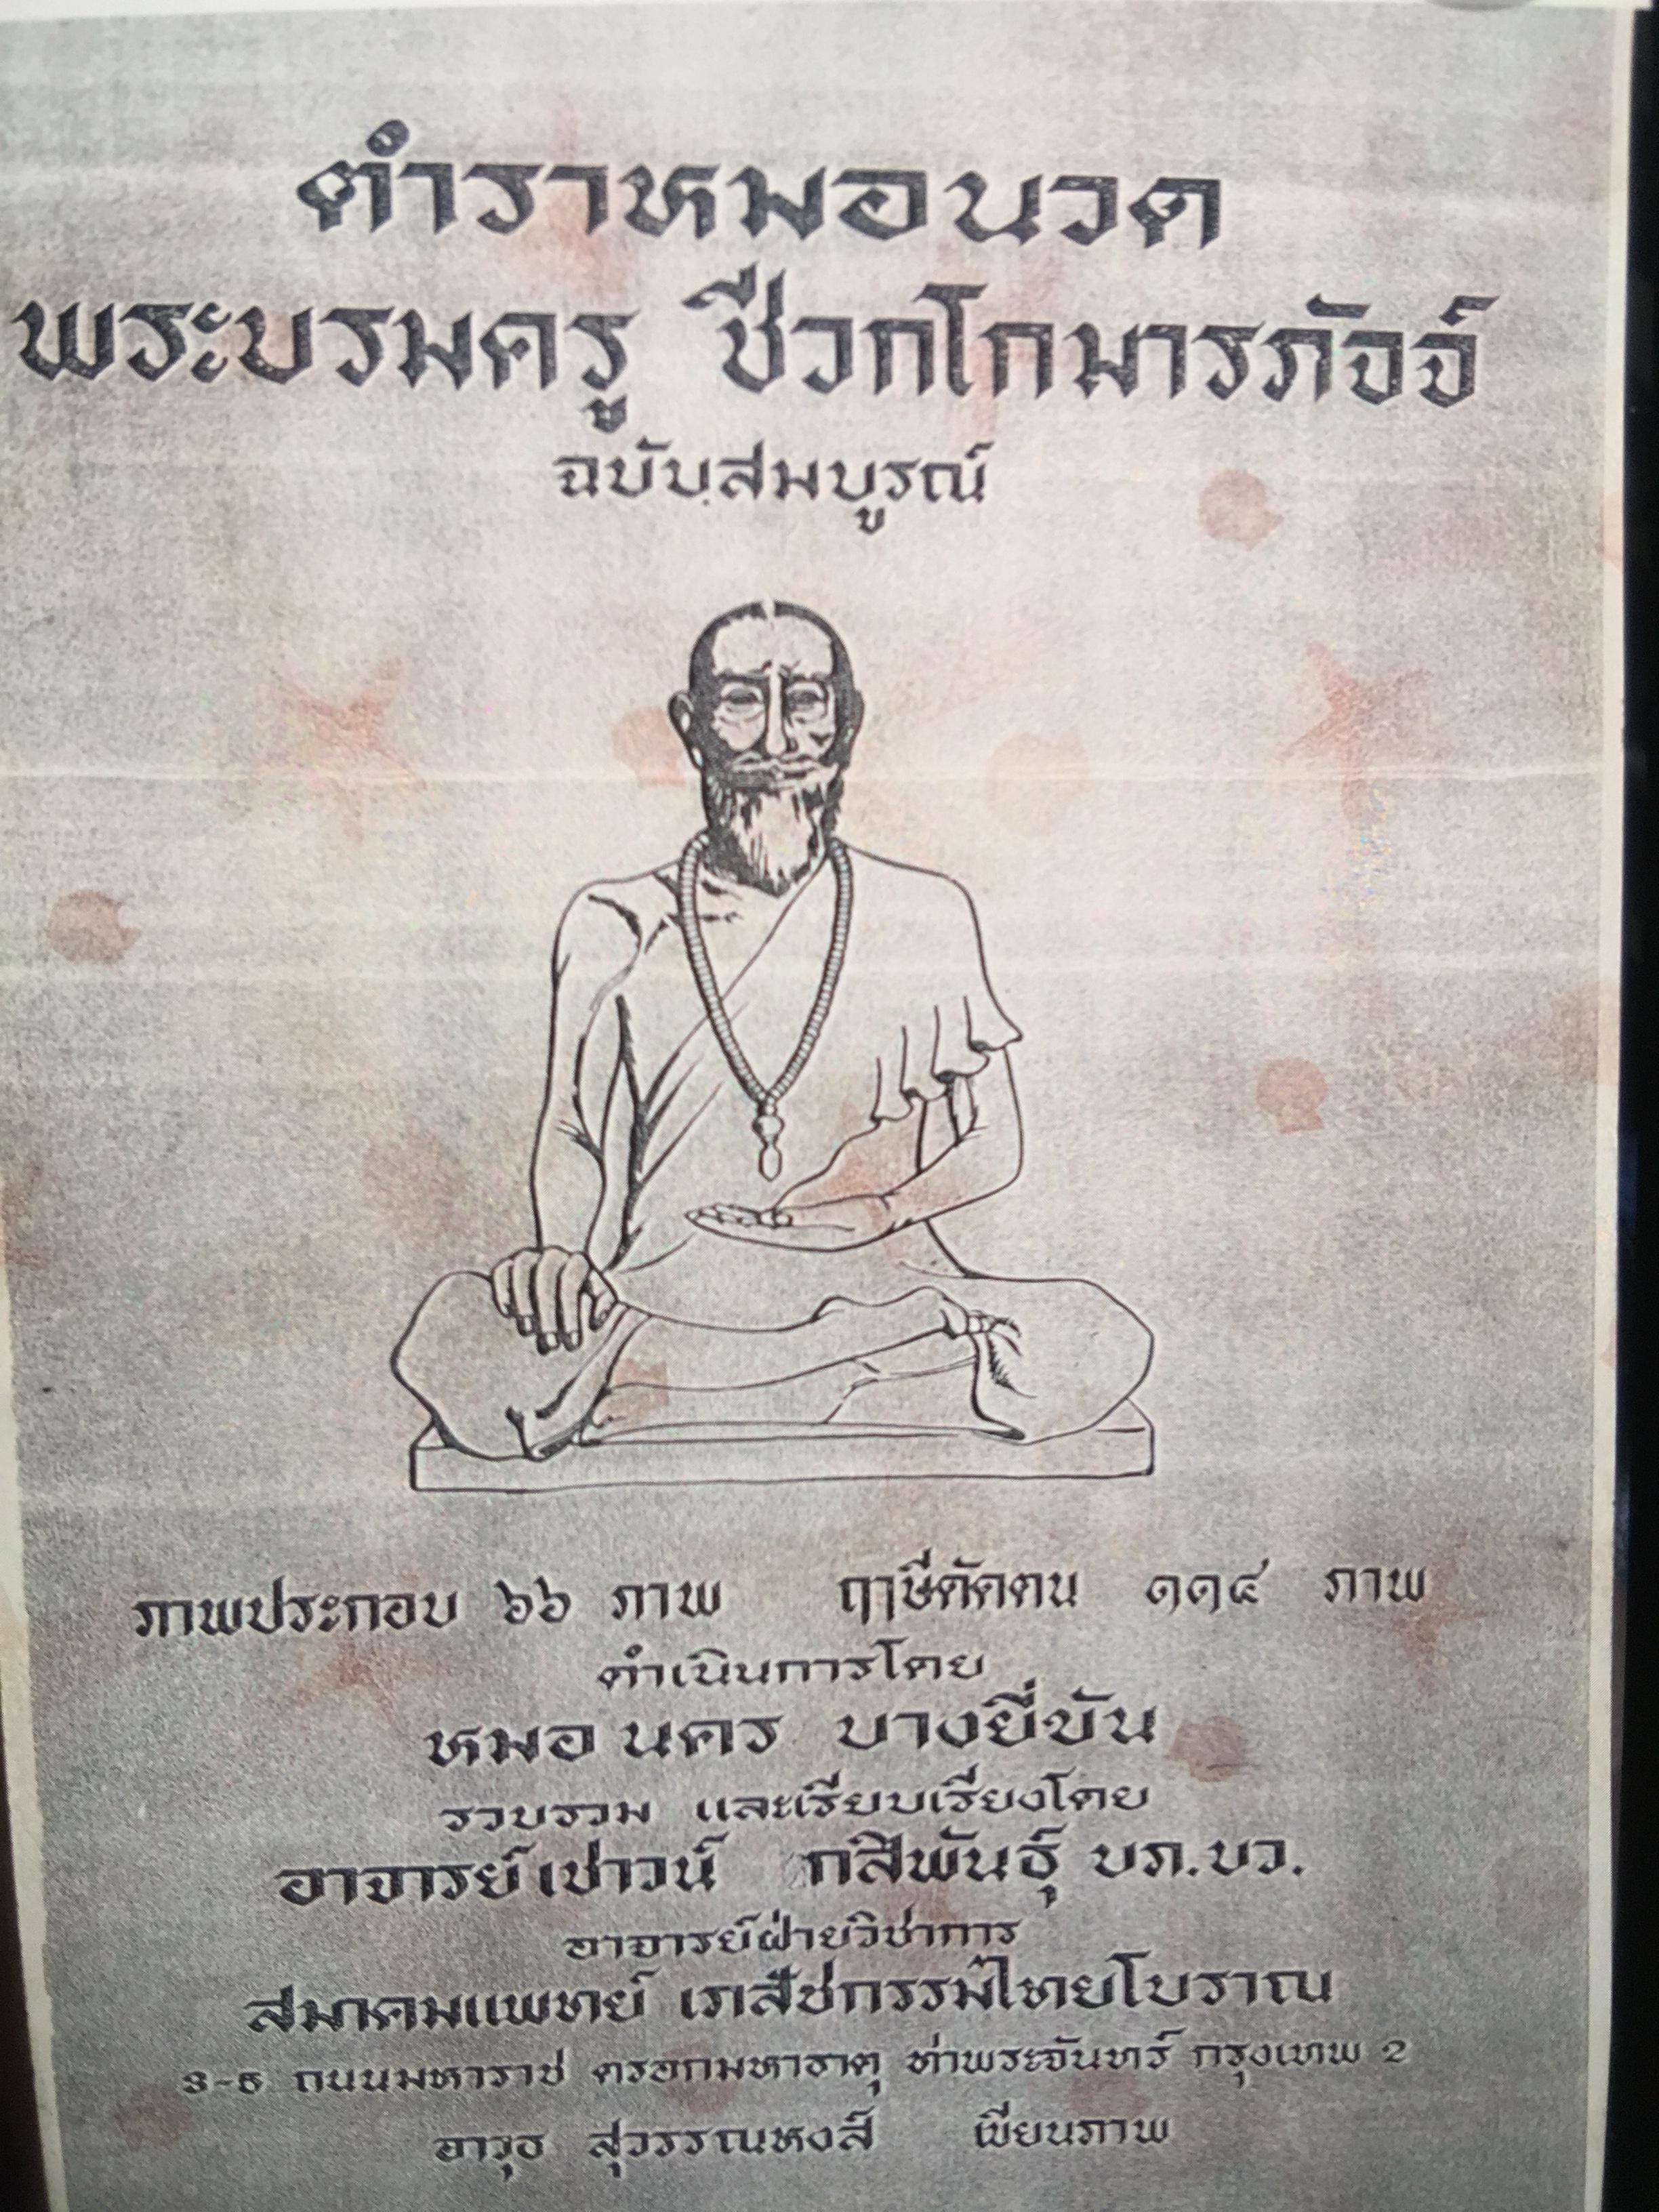 ตำราหมอนวด
พระบรมครู ชีวกโกมารภัจจ์
ฉบับสมบูรณ์
ภาพประกอบ ๖๖ ภาพ ฤาษีดัดตน ๑๑๔ ภาพ
ดำเนินการโดย
หมอ นคร บางยี่ขัน
รวบรวม และเรียบเรียงโดย
อาจารย์เชาวน์ กสิพันธุ์ บภ.บว.
อาจารย์ฝ่ายวิชาการ
สมาคมแพทย์ เภสัชกรรมไทยโบราณ
3-5 ถนนมหาราช ตรอกมหาธาตุ ท่าพระจันทร์ กรุงเทพ 2
อาวุธ สุวรรณหงส์ เขียนภาพ